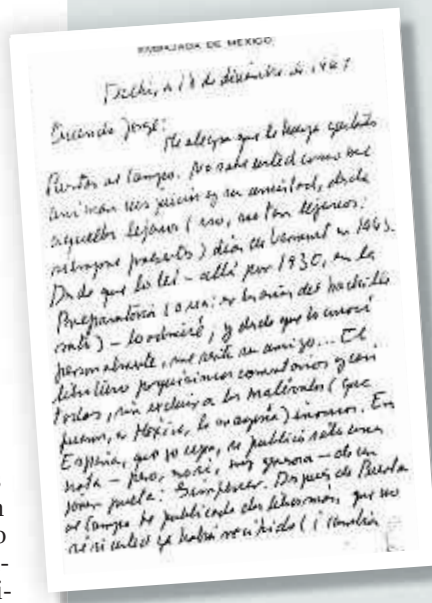 EMBAJADA DE MEXICO
Delhi, a 18 de diciembre de 1967
Querido Jorge:
Me alegra que le haya gustado
Puertas al Campo. No sabe usted cómo me
animan sus juicios y su amistad, desde
aquellos lejanos (
días de Vermont en 1943.
Desde que lo leí — allá por 1930, en la
Preparatoria (o sea: en
) — lo admiré, y desde que lo conocí
personalmente, me sentí su amigo... El
libro tuvo poquísimos comentarios y casi
todos, sin excluir a los malévolos (que
fueron, en México, la mayoría)
. En
España, que yo sepa, se publicó sólo una
nota — pero,
, muy generosa — de un
joven poeta: Gimferrer. Después de Puertas
al Campo he publicado dos
que no
sé si usted ya habrá recibido (
n
o
-
i-